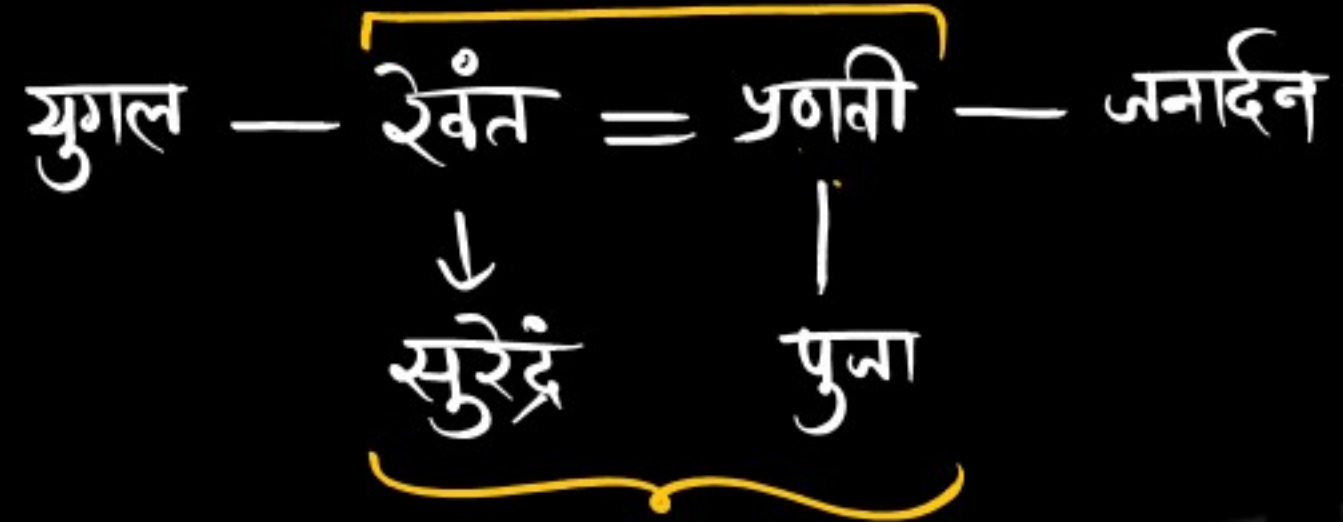 युगल — रेवंत = प्रणवी — जनार्दन
सुरेंद्रं पुजा